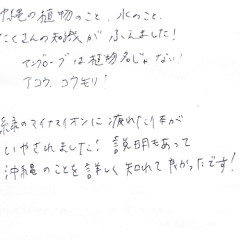 沖縄の植物のこと、水のこと、
たくさんの知識がふえました!
マングローブは植物名じゃない!
アコウ、コウモリ!
緑のマイナスイオンに疲れた体が
いやされました! 説明もあって
沖縄のことを詳しく知れて良かったです!